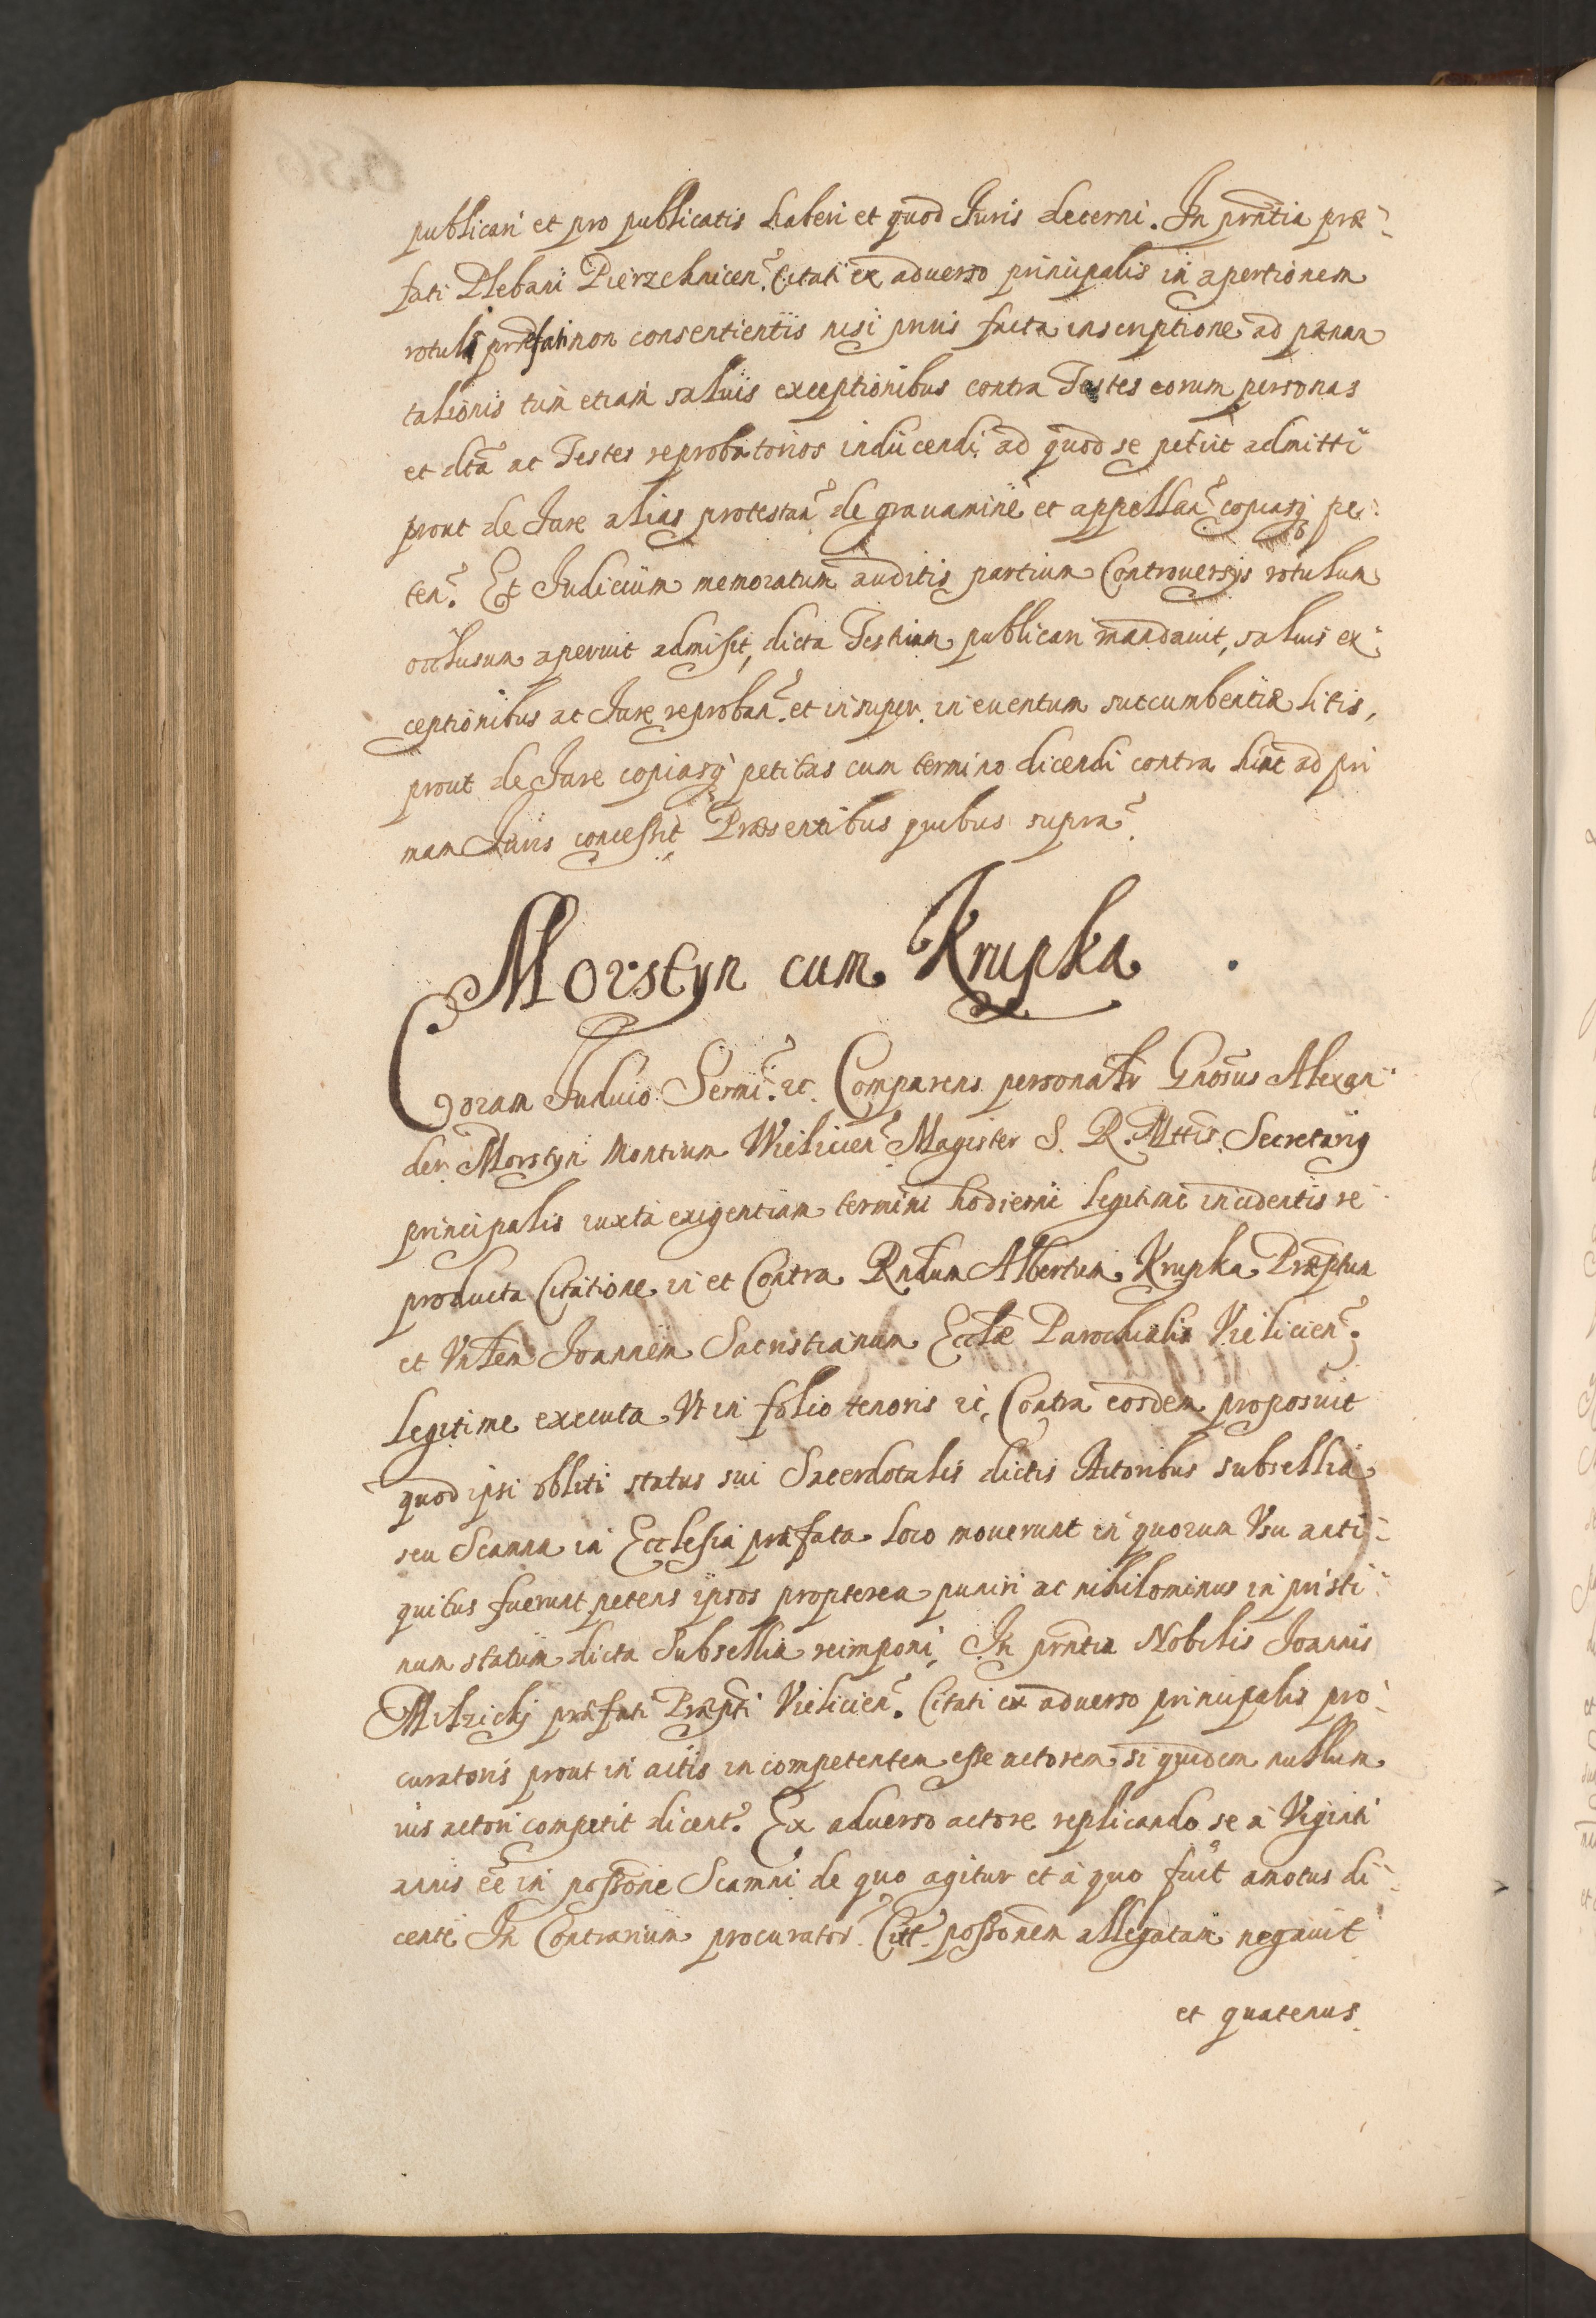 publicari et pro publicatis haberi et quod Juris decerni. In prntia præ-
fati Plebani Pierzchnicen. Citati ex aduerso principalis in apertionem
rotuli præfati non consentientis nisi prius facta inscriptione ad pænam
talionis tum etiam saluis exceptionibus contra Testes eorum personas
et dcta ac Testes reprobatorios inducendi ad quod se petiit admitti
prout de Jure alias protestan. de grauamine et appellan. copiasq pe-
ten. Et Judicium memoratum auditis partium Controuersijs rotulum
occlusum aperuit admisit, dicta Testium publicari mandauit, saluis ex-
ceptionibus ac Jure reproban. et insuper in euentum succumbentiæ litis,
prout de Jure copiasq petitas cum termino dicendi contra hinc ad pri
mam Juris concessit Præsentibus quibus supra.
Morstyn cum Krupka
Coram Judicio Sermi. etc. Comparens personalr Gnosus Alexan-
der Morstyn Montium Wieliciен. Magister S. R. Mttis Secretarius
principalis iuxta exigentiam termini hodierni legitime incidentis re-
producta Citatione in et Contra Rndum Albertum Krupka Præptum
et Vnlem Joannem Sacristianum Ecclæ Parochialis Vielicien.
legitime executa Vt in folio tenoris etc. Contra eosdem proposuit
quod ipsi obliti status sui Sacerdotalis dictis Actoribus subsellia
seu Scamna in Ecclesia præfata loco mouerunt in quorum Vsu anti-
quitus fuerunt petens ipsos propterea puniri ac nihilominus in pristi-
num statum dicta Subsellia reimponi. In prntia Nobilis Joannis
Milzickj præfati Præpti Vielicien. Citati ex aduerso principalis pro-
curatoris prout in actis incompetentem esse actorem si quidem nullum
ius actori competit dicent. Ex aduerso actore replicando se à Viginti
annis ee in possone Scamni de quo agitur et à quo fuit amotus di-
cente In Contrarium procurator Citt. possonem allegatam negauit
et quatenus